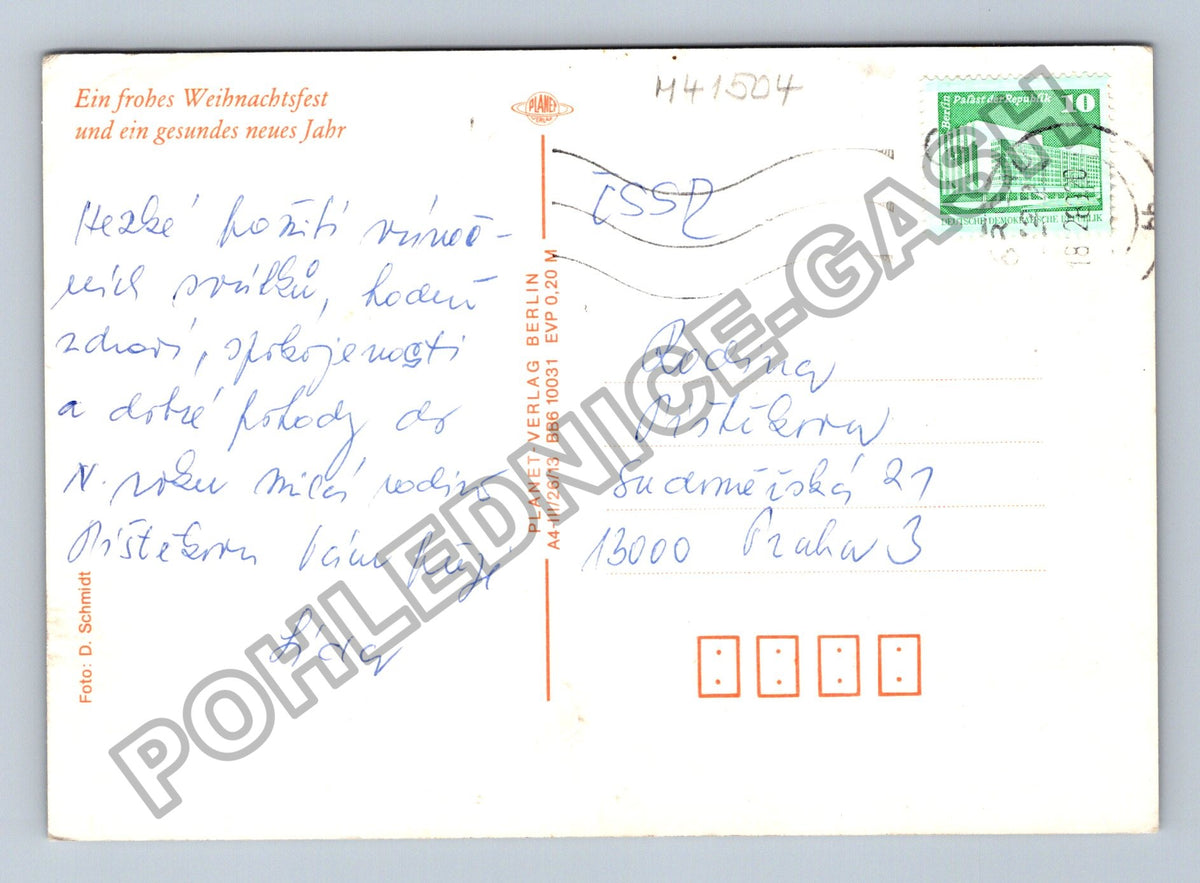 Ein frohes Weihnachtsfest
und ein gesundes neues Jahr
PLANET
VERLAG
M41504
Berlin Palast der Republik 10
DEUTSCHE DEMOKRATISCHE REPUBLIK
ČSSR
Hezké požití vánoč-
ních svátků, hodně
zdraví, spokojenosti
a dobré pohody do
N. roku milá rodino
Pištěkova Vám přeje
Foto: D. Schmidt
PLANET-VERLAG BERLIN
A4-III/26/13 BB6 10031 EVP 0,20 M
Rodina
Pištěkova
Sudoměřská 21
13000 Praha 3
POHLEDNICE-GASH